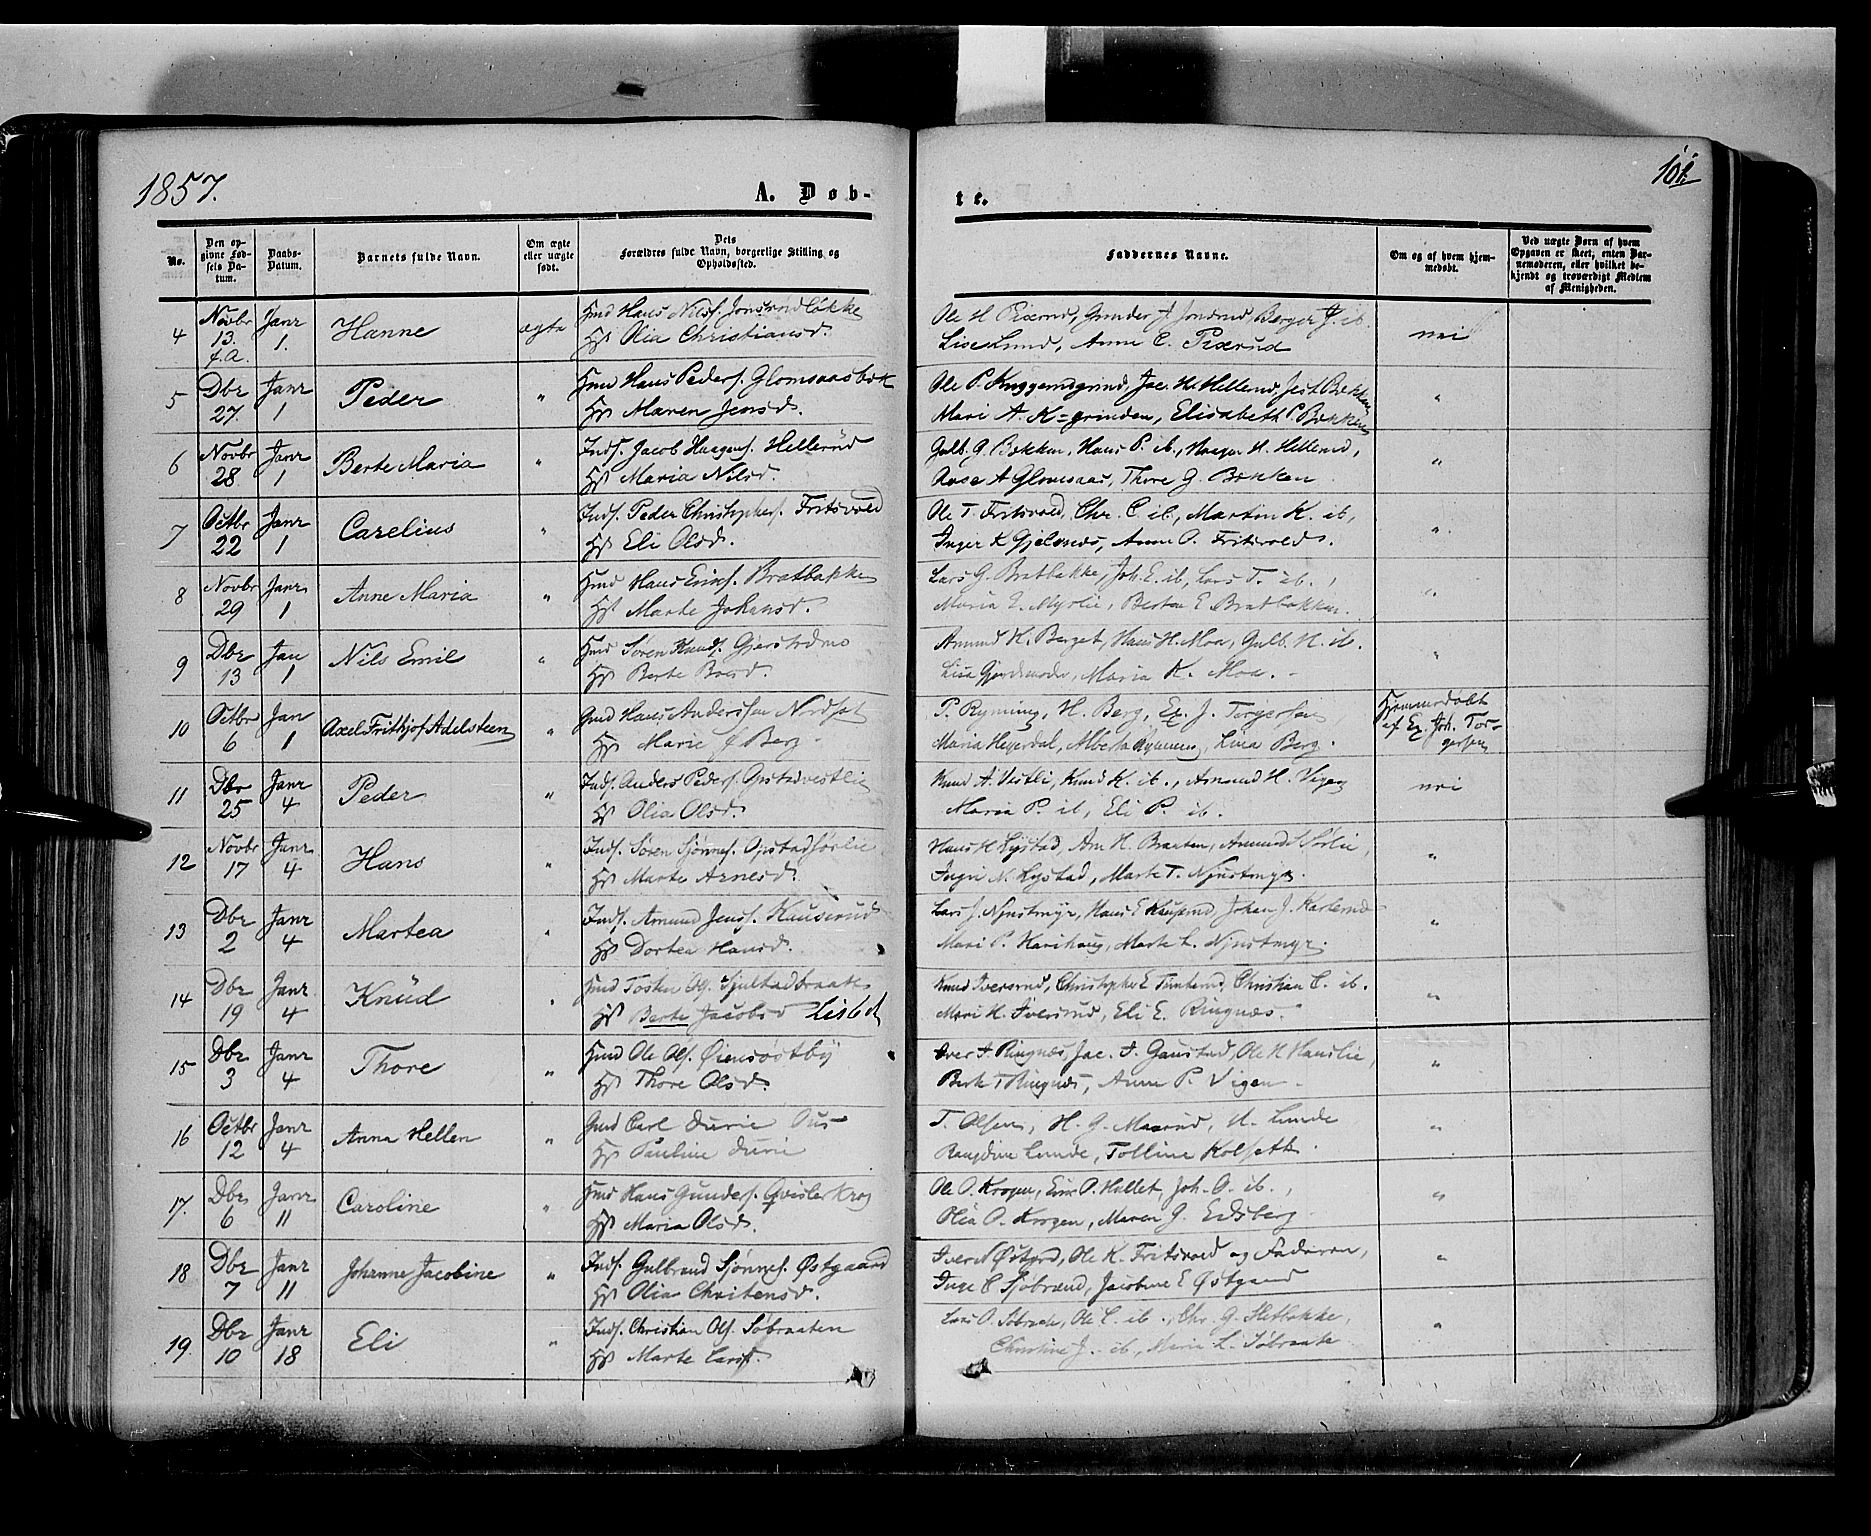 1857.
A. Døb-
te.
101.
No.
Den op-
givne Fød-
sels Da-
tum.
Daabs-
Datum.
Barnets fulde Navn.
Om ægte
eller uægte
født.
Dets
Forældres fulde Navn, borgerlige Stilling og
Opholdssted.
Faddernes Navne.
Om og af hvem hjem-
medøbt.
Ved uægte Børn af hvem
Opgaven er skeet, enten Bar-
nemoderen, eller hvilket be-
kjendt og troværdigt Medlem
af Menigheden.
4 Novbr 13. f.A. Janr 1. Hanne ægte
Hans Nilsf. Jonsrudløkke
Olia Christiansd.
Ole H Pixrud, Gunder J. Jonsrud, Berger J. ib.
Lise Lund, Anne E. Pixrud
nei
5 Dbr 27. Janr 1 Peder "
Hans Pedersf. Glomsaasbak
Maren Jensd.
Ole P. Kuggerudgrind, Jac. H. Hellerud, Bakken
Mari A. K-grinden, Elisabeth P. Bakken
"
6 Novbr 28 Janr 1 Berte Maria "
Inds. Jacob Haagens. Hellerud
Maria Nilsd.
Gulb. G. Bakken, Hans P. ib., Haagen H. Hellerud,
A Glomsaas, Thore G. Bakken
"
7 Octbr 22 Janr 1 Carelius "
Inds. Peder Christophers. Fritsvold
Eli Olsd.
Ole T. Fritsvold, Chr. C. ib., Martin K. ib,
Inger K Gjelsnes, Anne O. Fritsvold.
"
8 Novbr 29 Janr 1 Anne Maria "
Hans Eriks. Bratbakke
Marte Johansd.
Lars G. Bratbakke, Joh. E. ib, Lars T. ib.,
Maria E. Myrlie, Berta E Bratbakken.
"
9 Dbr 13 Jan 1 Nils Emil "
Søren Knuds.
Berte
Amund H. Berget, Hans H. Moa, Gulb. H. ib.
Lisa Maria K. Moa.
"
10 Octbr 6 Jan 1 Axel Frithjof Adelsteen "
Hans Anderssen Nordset
Marie f Berg
P. Rynning, H. Berg, Ex. J. Torgersen
Maria Heyerdal, Alberta Rynning, Lina Berg.
Hjemmedøbt
af Ex. Joh. Tor-
gersen
11 Dbr 25 Janr 4 Peder "
Inds. Anders Peders. Opstadvestlie
Olia Olsd.
Knud A. Vestli, Knud K. ib., Amund H. Vigen
Maria P. ib, Eli P. ib.
nei
12 Novbr 17 Janr 4 Hans "
Inds. Søren Sjønnes. Opstadsørlie
Marte Arnesd.
Hans H Lystad, Arn H. Braaten, Amund Sørlie,
Ingri N. Lystad, Marte T. Njustmyr.
"
13 Dbr 2 Janr 4 Martea "
Inds. Amund Jenss. Kauserud
Dortea Hansd.
Lars J. Njustmyr, Hans E Kauserud, Johan J. Karterud
Mari P. Karihaug, Marte L. Njustmyr.
"
14 Dbr 19 Janr 4 Knud "
Tosten Ols. Sjulstadbraate
Berte Jacobsd Lisbet
Knud Iversrud, Christopher E Tunterud, Christian C. ib.
Mari H. Iversrud, Eli E. Ringnæs.
"
15 Dbr 3 Janr 4 Thore "
Ole Ols. Øiensøstby
Thore Olsd.
Iver A. Ringnæs, Jac. J. Gaustad, Ole H Hauglie,
Berte T Ringnæs, Anne P. Vigen
"
16 Octbr 12 Janr 4 Anna Hellen "
Carl Durie Ous
Pauline Durie
T. Olsen, H. G. Maarud, U. Lunde
Ragdine Lunde, Tolline Kolseth
"
17. Dbr 6 Janr 11 Caroline "
Hans Gunders. Qvisler Krog
Maria Olsd.
Ole O. Krogen, Even P. Hallet, Joh. O. ib.,
Olia O. Krogen, Maren G. Edsberg
"
18 Dbr 7 Janr 11 Johanne Jacobine "
Inds. Gulbrand Sjønnes. Østgaard
Olia Christensd.
Iver N Østgrd, Ole K. Fritsvold og Faderen,
Inge C Sjøbrænd, Jacobine E Østgaard
"
19. Dbr 10 Janr 18 Eli "
Inds. Christian Ols. Søbraaten
Marte Larsd.
Lars O. Søbraate, Ole C. ib., Chr. G. Sletbakke,
Christine J. ib, Marie L. Søbraate
"